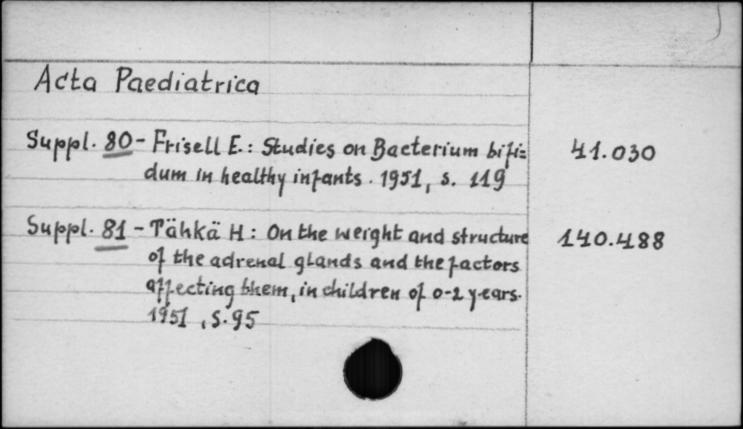 Acta Paediatrica
Suppl. 80 - Frisell E.: Studies on Bacterium bifi= 41.030
dum in healthy infants. 1951, s. 119
Suppl. 81 - Tähkä H: On the weight and structure 140.488
of the adrenal glands and the factors
affecting them, in children of 0-2 years.
1951, S. 95